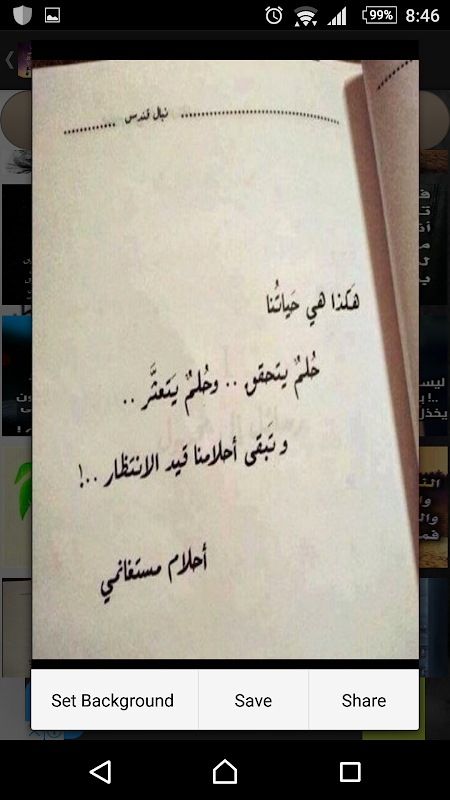 99% 8:46
نبال قندس
هَكذا هي حَياتُنا
حُلمٌ يتحقق .. وحُلمٌ يَتعثَّر ..
و تَبقى أحلامنا قيد الانتظار ..!
أحلام مستغانمي
Set Background Save Share